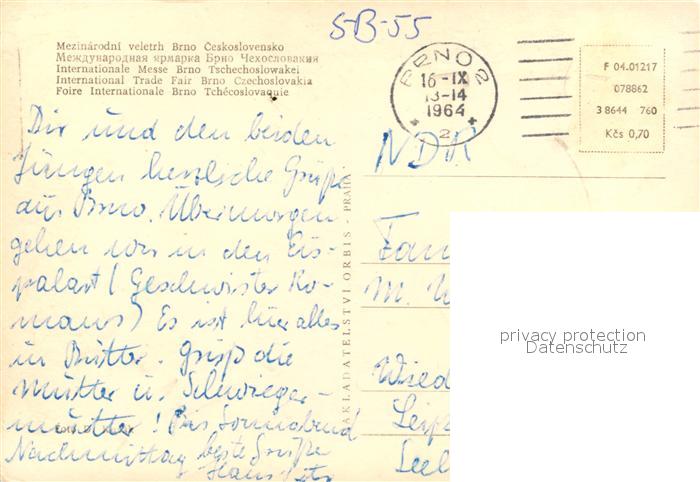 S-B-55
Mezinárodní veletrh Brno Československo
Международная ярмарка Брно Чехословакия
Internationale Messe Brno Tschechoslowakei
International Trade Fair Brno Czechoslovakia
Foire Internationale Brno Tchécoslovaquie
BRNO 2
16-IX
13-14
1964
2
F 04.01217
078862
3 8644 760
Kčs 0,70
Dir und den beiden
Jungen herzliche Grüße
aus Brno. Übermorgen
gehen wir in den Eis-
palast (Geschwister Ro-
manus) Es ist hier alles
in Butter. Grüß die
Mutter u. Schwieger-
mutter! Bis Sonnabend
Nachmittag beste Grüße
Hans
NAKLADATELSTVÍ ORBIS - PRAHA
NDR
Fam
M. W
Wied
Leipz
Seel
privacy protection
Datenschutz